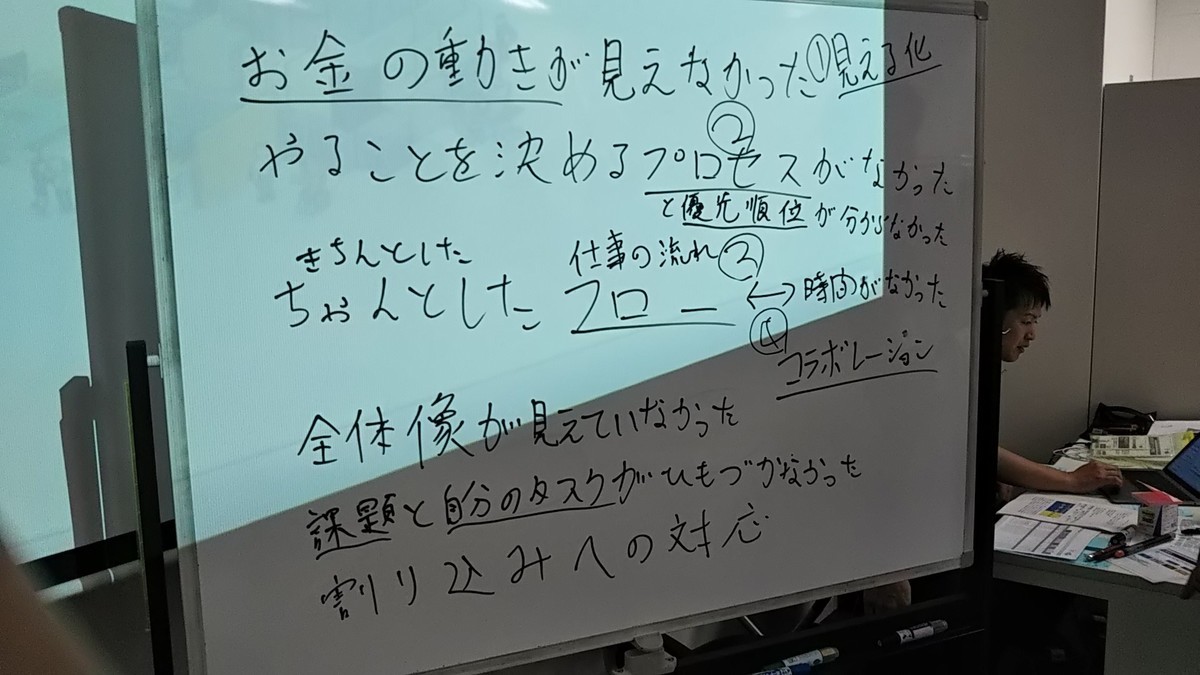 お金の動きが見えなかった ①見える化
②
やることを決めるプロセスがなかった
と優先順位が分からなかった
きちんとした 仕事の流れ③
ちゃんとしたフロー ↔ 時間がなかった
④コラボレーション
全体像が見えていなかった
課題と自分のタスクがひもづかなかった
割り込みへの対応